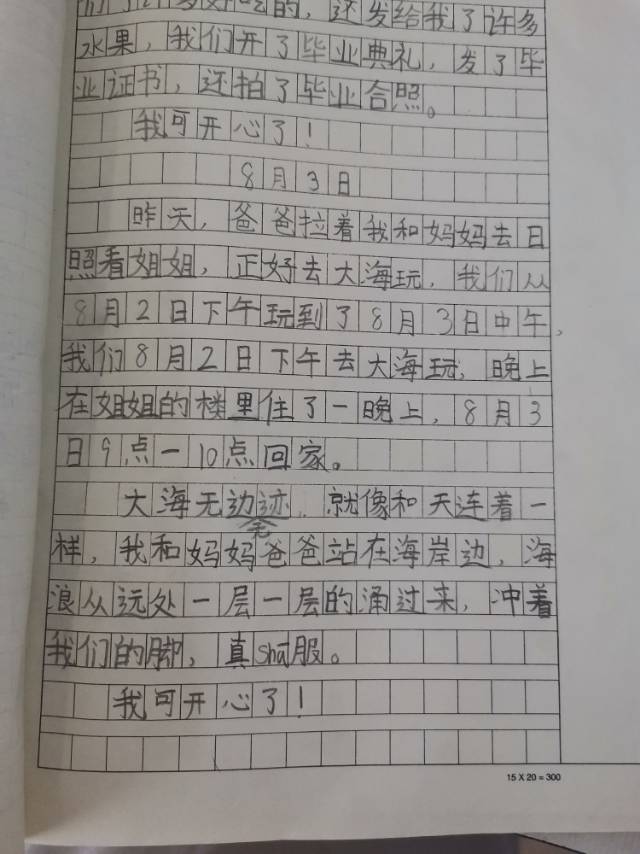 们了许多好吃的，还发给我了许多
水果，我们开了毕业典礼，发了毕
业证书，还拍了毕业合照。
我可开心了！
8月3日
昨天，爸爸拉着我和妈妈去日
照看姐姐，正好去大海玩，我们从
8月2日下午玩到了8月3日中午，
我们8月2日下午去大海玩，晚上
在姐姐的楼里住了一晚上，8月3
日9点一10点回家。
大海无边无迹，就像和天连着一
样，我和妈妈爸爸站在海岸边，海
浪从远处一层一层的涌过来，冲着
我们的脚，真shū服。
我可开心了！
15 X 20 = 300